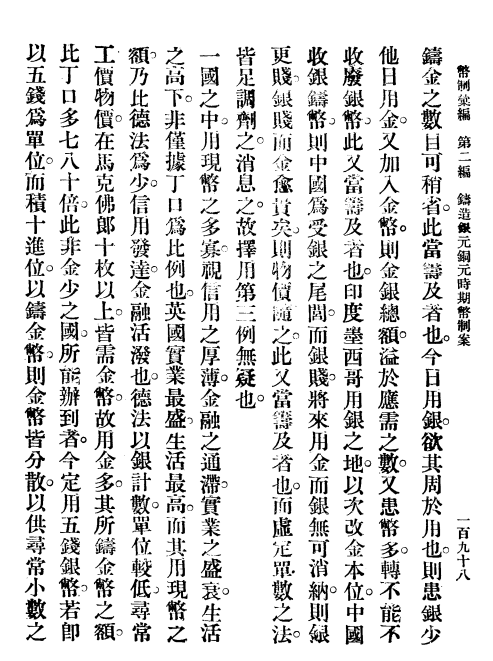 幣制彙編　第二編　鑄造銀元銅元時期幣制案　一百九十八
鑄金之數目可稍省。此當籌及者也。今日用銀。欲其周於用也。則患銀少
他日用金。又加入金幣。則金銀總額。溢於應需之數。又患幣多。轉不能不
收廢銀幣。此又當籌及者也。印度墨西哥用銀之地。以次改金本位。中國
收銀鑄幣。則中國爲受銀之尾閭。而銀賤。將來用金而銀無可消納。則銀
更賤。銀賤而金愈貴矣。則物價隨之。此又當籌及者也。而虛定單數之法。
皆足調劑之。消息之。故擇用第三例無疑也。
一國之中。用現幣之多寡。視信用之厚薄。金融之通滯。實業之盛衰。生活
之高下。非僅據丁口爲比例也。英國實業最盛。生活最高。而其用現幣之
額。乃比德法爲少。信用發達。金融活潑也。德法以銀計數。單位較低。尋常
工價物價。在馬克佛郎十枚以上。皆需金幣。故用金多。其所鑄金幣之額。
比丁口多七八十倍。此非金少之國。所能辦到者。今定用五錢銀幣。若卽
以五錢爲單位。而積十進位。以鑄金幣。則金幣皆分散。以供尋常小數之